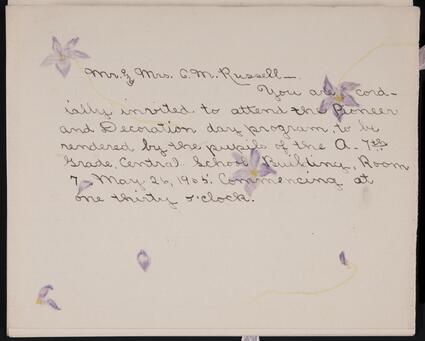 Mr. & Mrs. C. M. Russell—
You are cord-
ially invited to attend the Pioneer
and Decoration day program, to be
rendered by the pupils of the A-7th
Grade, Central School Building, Room
7 - May 26, 1905. Commencing at
one thirty o'clock.